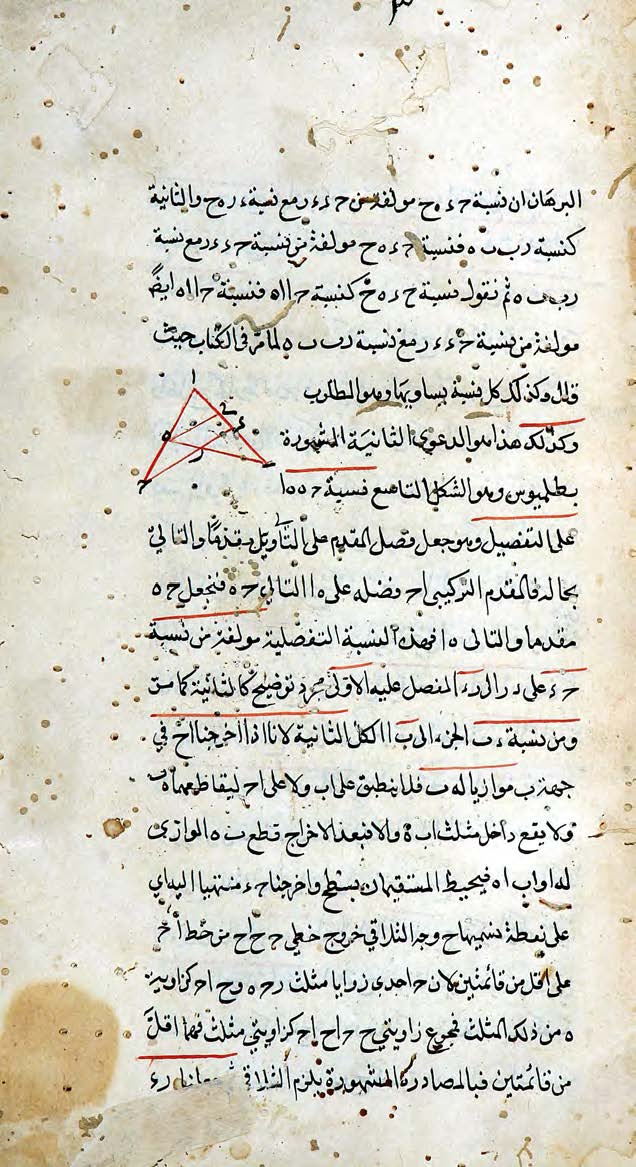 البرهان ان نسبة ح ء ء ح مولفة من ح ء ء ر مع نسبة ء ر ه ح والثانية
كنسبة ر ب ب ه فنسبة ح ء ه ح مولفة من نسبة ح ء ء ر مع نسبة
ر ب ب ه ثم نقول نسبة ح ء ه ح كنسبة ح ا ا ه فنسبة ح ا ا ه ايضً
مولفة من نسبة ح ء ء ر مع نسبة ر ب ب ه لما مر في الكتاب حيث
قال وكذلك كل نسبة يساويها وهو المطلوب
وكذلك هذا هو الدعوى الثانية المشهورة
بطلميوس وهو الشكل التاسع فنسبة ح ه ه ا
على التفصيل وهو جعل فضل المقدم على التاويل مقدما والتالي
بحاله فالمقدم التركيبي ا ح فضله على ه ا التالي ح ه فنجعل ح ه
مقدما والتالى ه ا فهذه النسبة التفصلية مولفة من نسبة
ح ء على ء ر الى ر ء المنفصل عليه الاولى مرد توضيح كالثانية كما مر
ومن نسبة ء ب الجزء الى ب ا الكل الثانية لانا اذا اخرجنا ا ح في
جهة ب موازيا له ب فلا ينطبق على اب ولا على ا ح ليقاطعهما ه ب
ولا يقع داخل مثلث ا ب ه والا فبعد الاخراج قطع ب ه الموازى
له او اب ا ه فيحيط المستقيمان بسطح واخرجنا ح ء منتهيا اليه اي
على نقطة نسميها ح وجه التلاقي خروج خطي ح ح ا ح من خط ا خر
على اقل من قائمتين لان ح احدى زوايا مثلث ر ح ه و ح ا ح كزاوية
ه من ذلك المثلث فمجموع زاويتي ح ح ا ح ا ح كزاويتي مثلث فهما اقل
من قائمتين فبالمصادرة المشهورة يلزم التلاقي